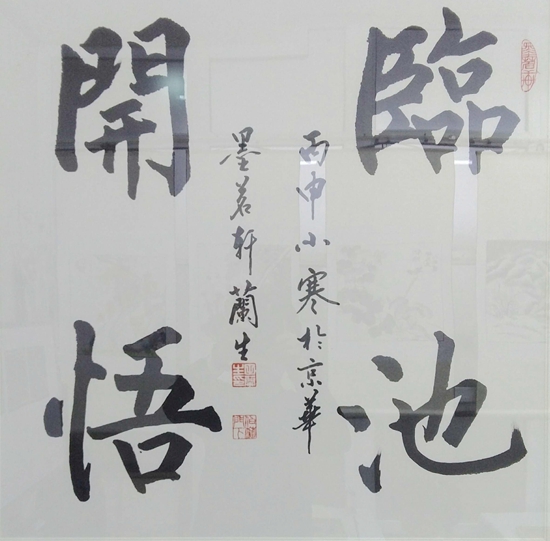 臨池
開悟
丙申小寒於京華
墨茗軒蘭生